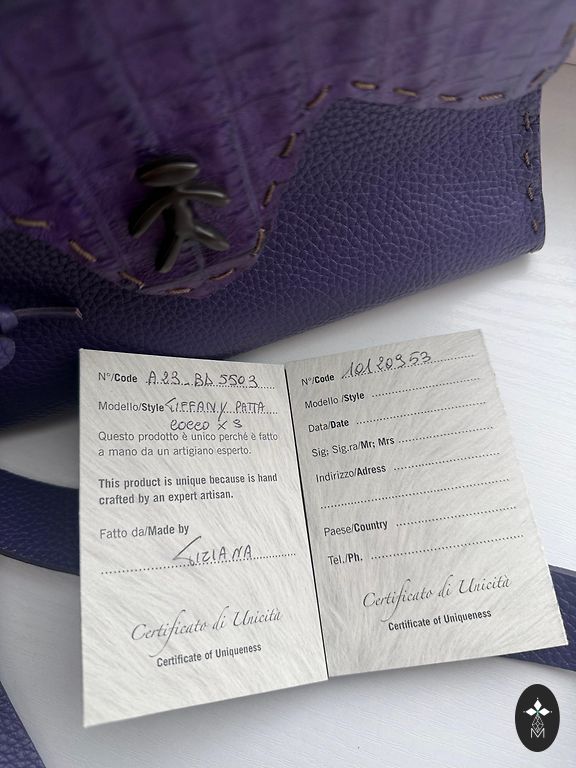 N°/Code A.23_BL5503
Modello/Style TIFFANY PATTA
COCCO XS
Questo prodotto è unico perché è fatto
a mano da un artigiano esperto.
This product is unique because is hand
crafted by an expert artisan.
Fatto da/Made by
TIZIANA
Certificato di Unicità
Certificate of Uniqueness
N°/Code 10120953
Modello/Style
Data/Date
Sig; Sig.ra/Mr; Mrs
Indirizzo/Adress
Paese/Country
Tel./Ph.
Certificato di Unicità
Certificate of Uniqueness
M